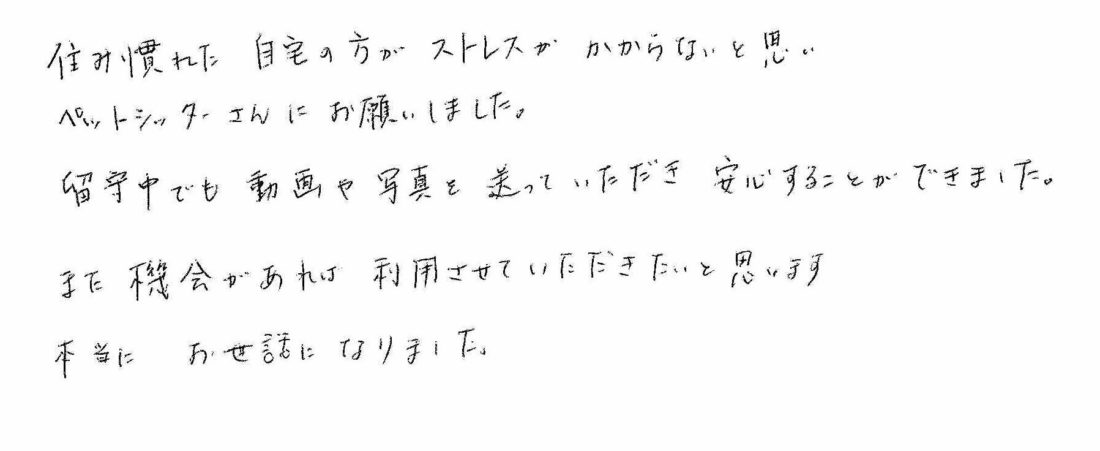 住み慣れた 自宅の方が ストレスが かからないと思い
ペットシッターさんに お願いしました。
留守中でも 動画や写真を 送っていただき 安心することができました。
また 機会があれば 利用させていただきたいと思います
本当に お世話になりました。